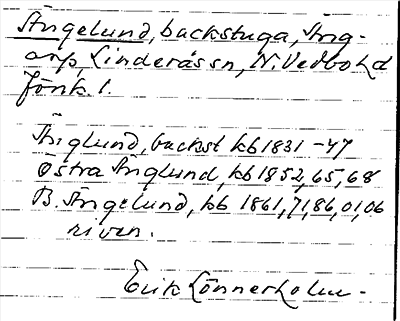 Ängelund, backstuga, Äng-
arp, Linderås sn, N. Vedbo hd
Jönk. l.
Änglund, backst kb 1831-47
Östra Änglund, kb 1852, 65, 68
B. Ängelund, kb 1861, 71, 86, 01, 06
riven.
Erik Lönnerholm.